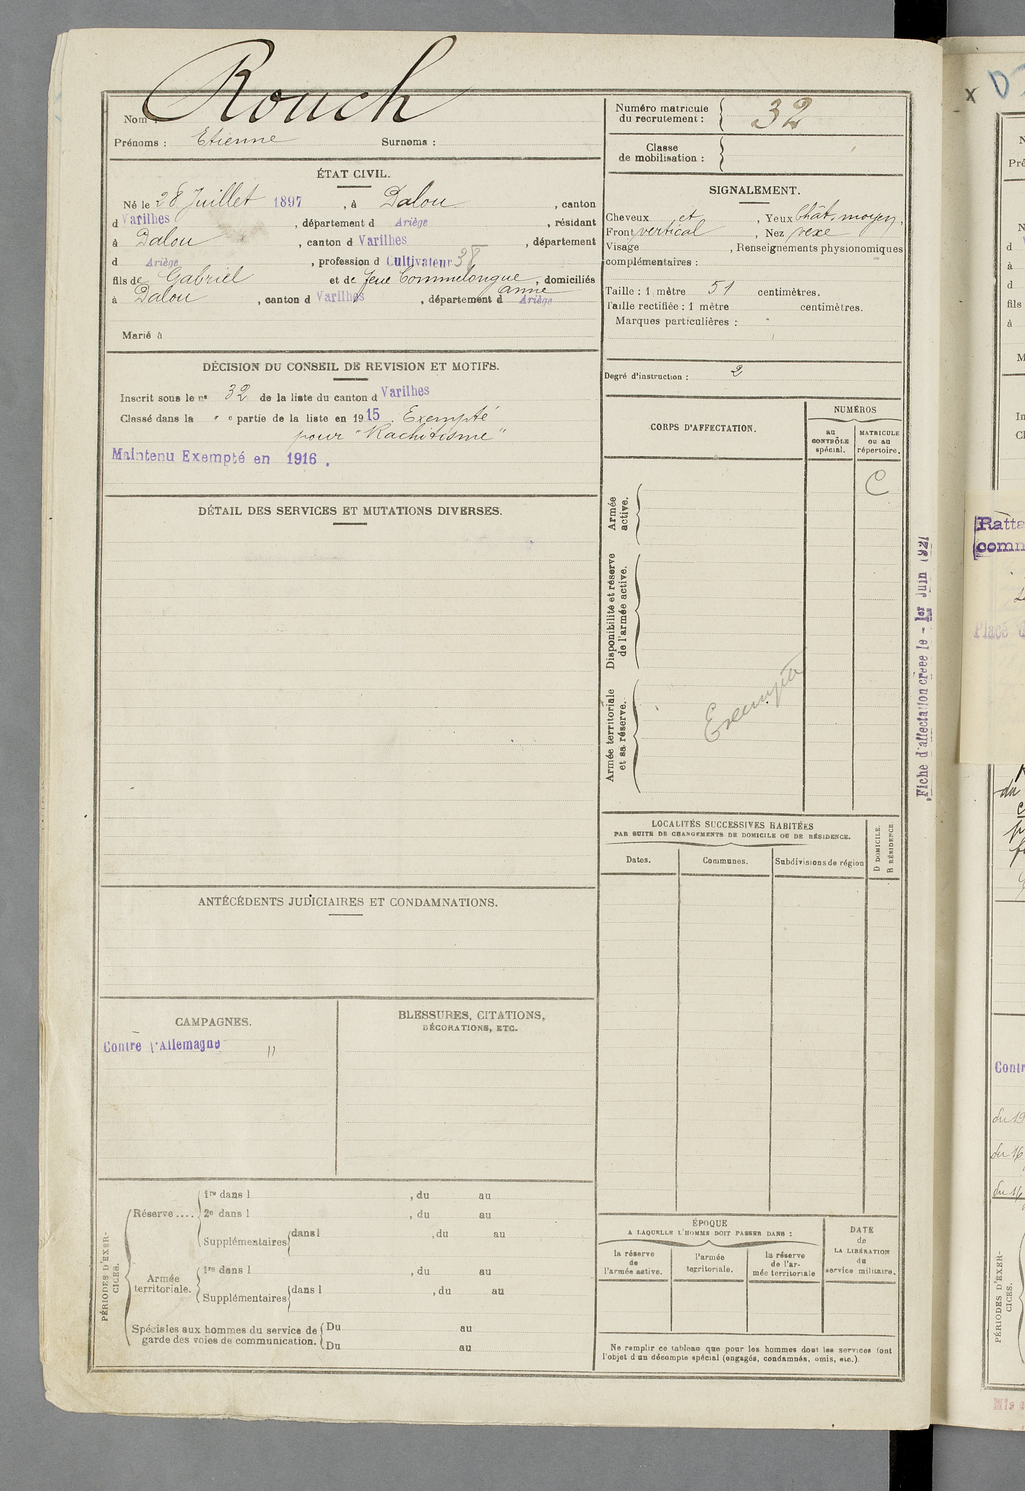 Rouch
Nom :
Prénoms : Etienne Surnoms :
ÉTAT CIVIL.
Né le 28 Juillet 1897, à Dalou, canton
d Varilhes, département d Ariège, résidant
à Dalou, canton d Varilhes, département
d Ariège, profession d Cultivateur 38
fils de Gabriel et de feue Commelongue anne, domiciliés
à Dalou, canton d Varilhes, département d Ariège
Marié à
DÉCISION DU CONSEIL DE REVISION ET MOTIFS.
Inscrit sous le nº 32 de la liste du canton d Varilhes
Classé dans la " e partie de la liste en 1915. Exempté
pour "Rachitisme"
Maintenu Exempté en 1916.
DÉTAIL DES SERVICES ET MUTATIONS DIVERSES.
ANTÉCÉDENTS JUDICIAIRES ET CONDAMNATIONS.
CAMPAGNES.
Contre l'Allemagne "
BLESSURES, CITATIONS,
DÉCORATIONS, ETC.
PÉRIODES D'EXER-
CICES.
Réserve ....
1re dans l , du au
2e dans l , du au
Supplémentaires dans l , du au
Armée
territoriale.
1re dans l , du au
Supplémentaires dans l , du au
Spéciales aux hommes du service de
garde des voies de communication.
Du au
Du au
Numéro matricule
du recrutement : 32
Classe
de mobilisation :
SIGNALEMENT.
Cheveux et , Yeux chât. moyen,
Front vertical, Nez vexe
Visage , Renseignements physionomiques
complémentaires :
Taille : 1 mètre 51 centimètres.
Taille rectifiée : 1 mètre centimètres.
Marques particulières :
Degré d'instruction : 2
CORPS D'AFFECTATION.
NUMÉROS
au
CONTRÔLE
spécial.
MATRICULE
ou au
répertoire.
C
Armée
active.
Disponibilité et réserve
de l'armée active.
Armée territoriale
et sa réserve.
Exempté
LOCALITÉS SUCCESSIVES HABITÉES
PAR SUITE DE CHANGEMENTS DE DOMICILE OU DE RÉSIDENCE.
Dates.
Communes.
Subdivisions de région
D DOMICILE.
R RÉSIDENCE
ÉPOQUE
A LAQUELLE L'HOMME DOIT PASSER DANS :
la réserve
de
l'armée active.
l'armée
territoriale.
la réserve
de l'ar-
mée territoriale
DATE
de
LA LIBÉRATION
du
service militaire.
Ne remplir ce tableau que pour les hommes dont les services font
l'objet d'un décompte spécial (engagés, condamnés, omis, etc.).
Fiche d'affectation créée le - 1er Juin 1921